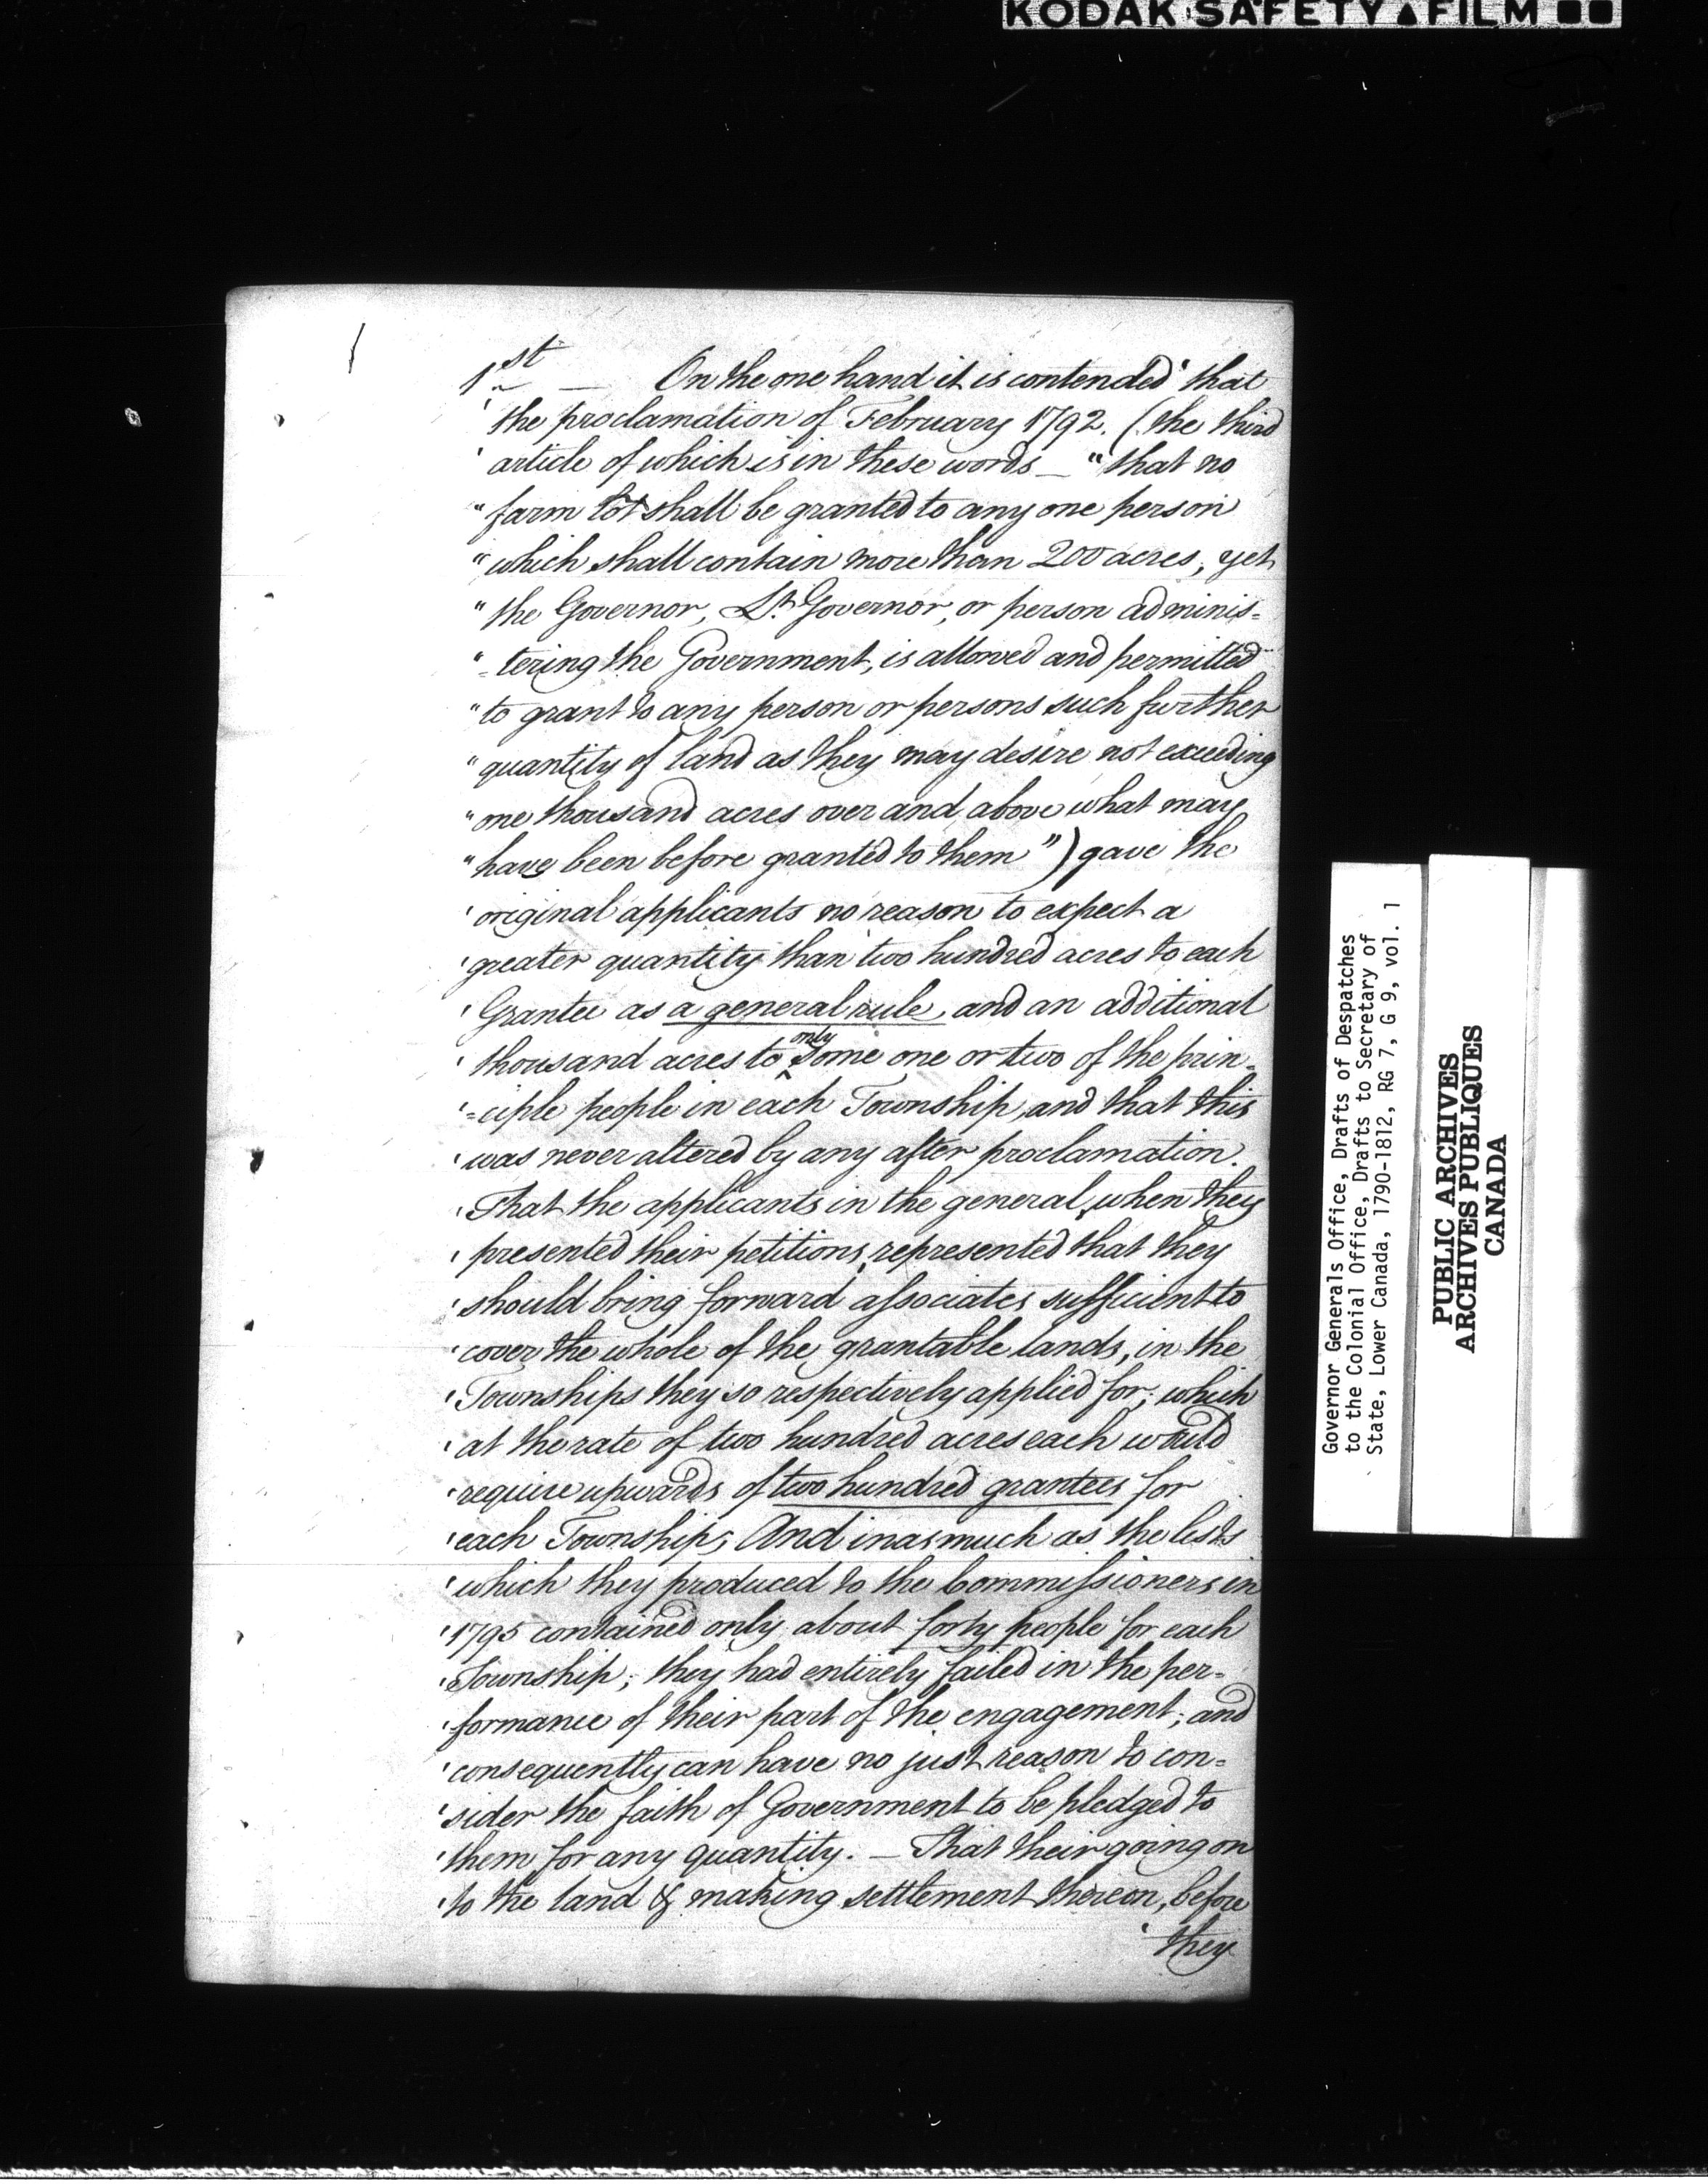 KODAK SAFETY FILM
1st — On the one hand it is contended 'that
' the proclamation of February 1792. (the third
' article of which is in these words — "that no
" farm lot shall be granted to any one person
" which shall contain more than 200 acres, yet
" the Governor, Lt. Governor, or person adminis=
" =tering the Government, is allowed and permitted
" to grant to any person or persons such further
" quantity of land as they may desire not exceeding
" one thousand acres over and above what may
" have been before granted to them") gave the
' original applicants no reason to expect a
' greater quantity than two hundred acres to each
' Grantee as a general rule, and an additional
' thousand acres to only some one or two of the prin=
' =ciple people in each Township, and that this
' was never altered by any after proclamation.
' That the applicants in the general, when they
' presented their petitions, represented that they
' should bring forward associates sufficient to
' cover the whole of the grantable lands, in the
' Townships they so respectively applied for; which
' at the rate of two hundred acres each would
' require upwards of two hundred grantees for
' each Township; And inasmuch as the lists
' which they produced to the Commissioners in
' 1795 contained only about forty people for each
' Township; they had entirely failed in the per=
' formance of their part of the engagement; and
' consequently can have no just reason to con=
' sider the faith of Government to be pledged to
' them for any quantity. — That their going on
' to the land & making settlement thereon, before
' they
Governor Generals Office, Drafts of Despatches
to the Colonial Office, Drafts to Secretary of
State, Lower Canada, 1790-1812, RG 7, G 9, vol. 1
PUBLIC ARCHIVES
ARCHIVES PUBLIQUES
CANADA